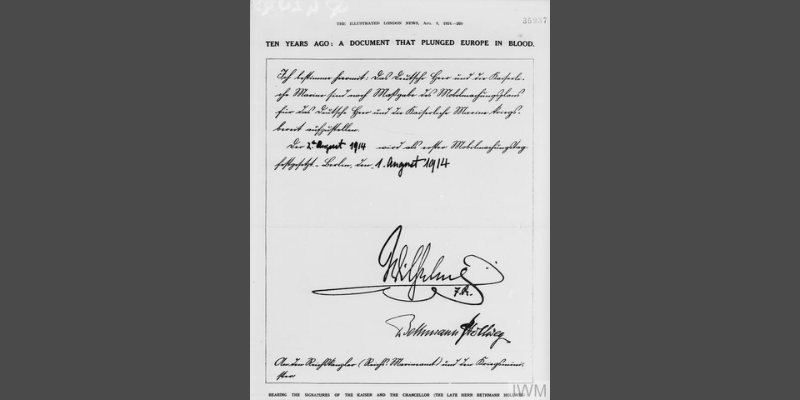 35937
THE ILLUSTRATED LONDON NEWS, AUG.
TEN YEARS AGO: A DOCUMENT THAT PLUNGED EUROPE IN BLOOD.
Ich bestimme hiermit: Das Deutsche Heer und die Kaiserli-
che Marine sind nach Maßgabe des Mobilmachungsplans
für das Deutsche Heer und die Kaiserliche Marine kriegs-
bereit aufzustellen.
Der 2. August 1914 wird als erster Mobilmachungstag
festgesetzt. Berlin, den 1. August 1914
Wilhelm
I.R.
Bethmann Hollweg
An den Reichskanzler (Reichs-Marineamt) und den Kriegsmini-
ster.
BEARING THE SIGNATURES OF THE KAISER AND THE CHANCELLOR (THE LATE HERR BETHMANN HOLLWEG)
IWM